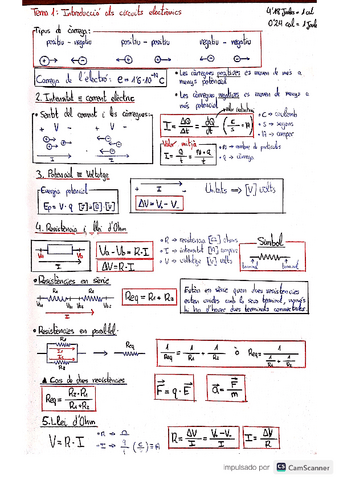 Tema 1: Introducció als circuits electrònics
4'18 Joules = 1 cal
0'24 cal = 1 Joule
Tipus de càrrega:
positiu - negatiu positiu - positiu negatiu - negatiu
Càrrega de l'electró: e = 1'6·10⁻¹⁹ C
• Les càrregues positives es mouen de més a menys potencial
• Les càrregues negatives es mouen de menys a més potencial
2. Intensitat o corrent elèctric
• Sentit del corrent i les càrregues:
+ V -
+ V -
I
I
I = ΔQ/Δt = dQ/dt (C/s = A)
• C → coulomb
• s → segons
• A → amper
Valor mitjà
I = Q/t = n·q/t
• n → nombre de partícules
• q → càrrega
3. Potencial o Voltatge
Energia potencial
Ep = V · q [V]·[Q] [V]
+ → -
I
ΔV = V₊ - V₋
Unitats ⟹ [V] volts
4. Resistència i llei d'Ohm
Va Vb
I
Va - Vb = R·I
ΔV = R·I
• R → resistència [Ω] ohms
• I → intensitat [A] ampers
• V → voltatge [V] volts
Símbol
terminal terminal
• Resistències en sèrie
R₁ R₂
I
Req = R₁ + R₂
Estan en sèrie quan dues resistències
estan unides amb el seu terminal, només
hi ha d'haver dues terminals connectades
• Resistències en paral·lel:
R₁
I₁
I₂
R₂
Req
1/Req = 1/R₁ + 1/R₂ o Req = 1/(1/R₁ + 1/R₂)
▲ Cas de dues resistències
Req = R₁·R₂/R₁+R₂
F = q · E
a = F/m
5. Llei d'Ohm
V = R · I
• R → Ω
• I → q/t (C/s) = A
R = ΔV/I = V₊ - V₋/I
I = ΔV/R
impulsado por CS CamScanner